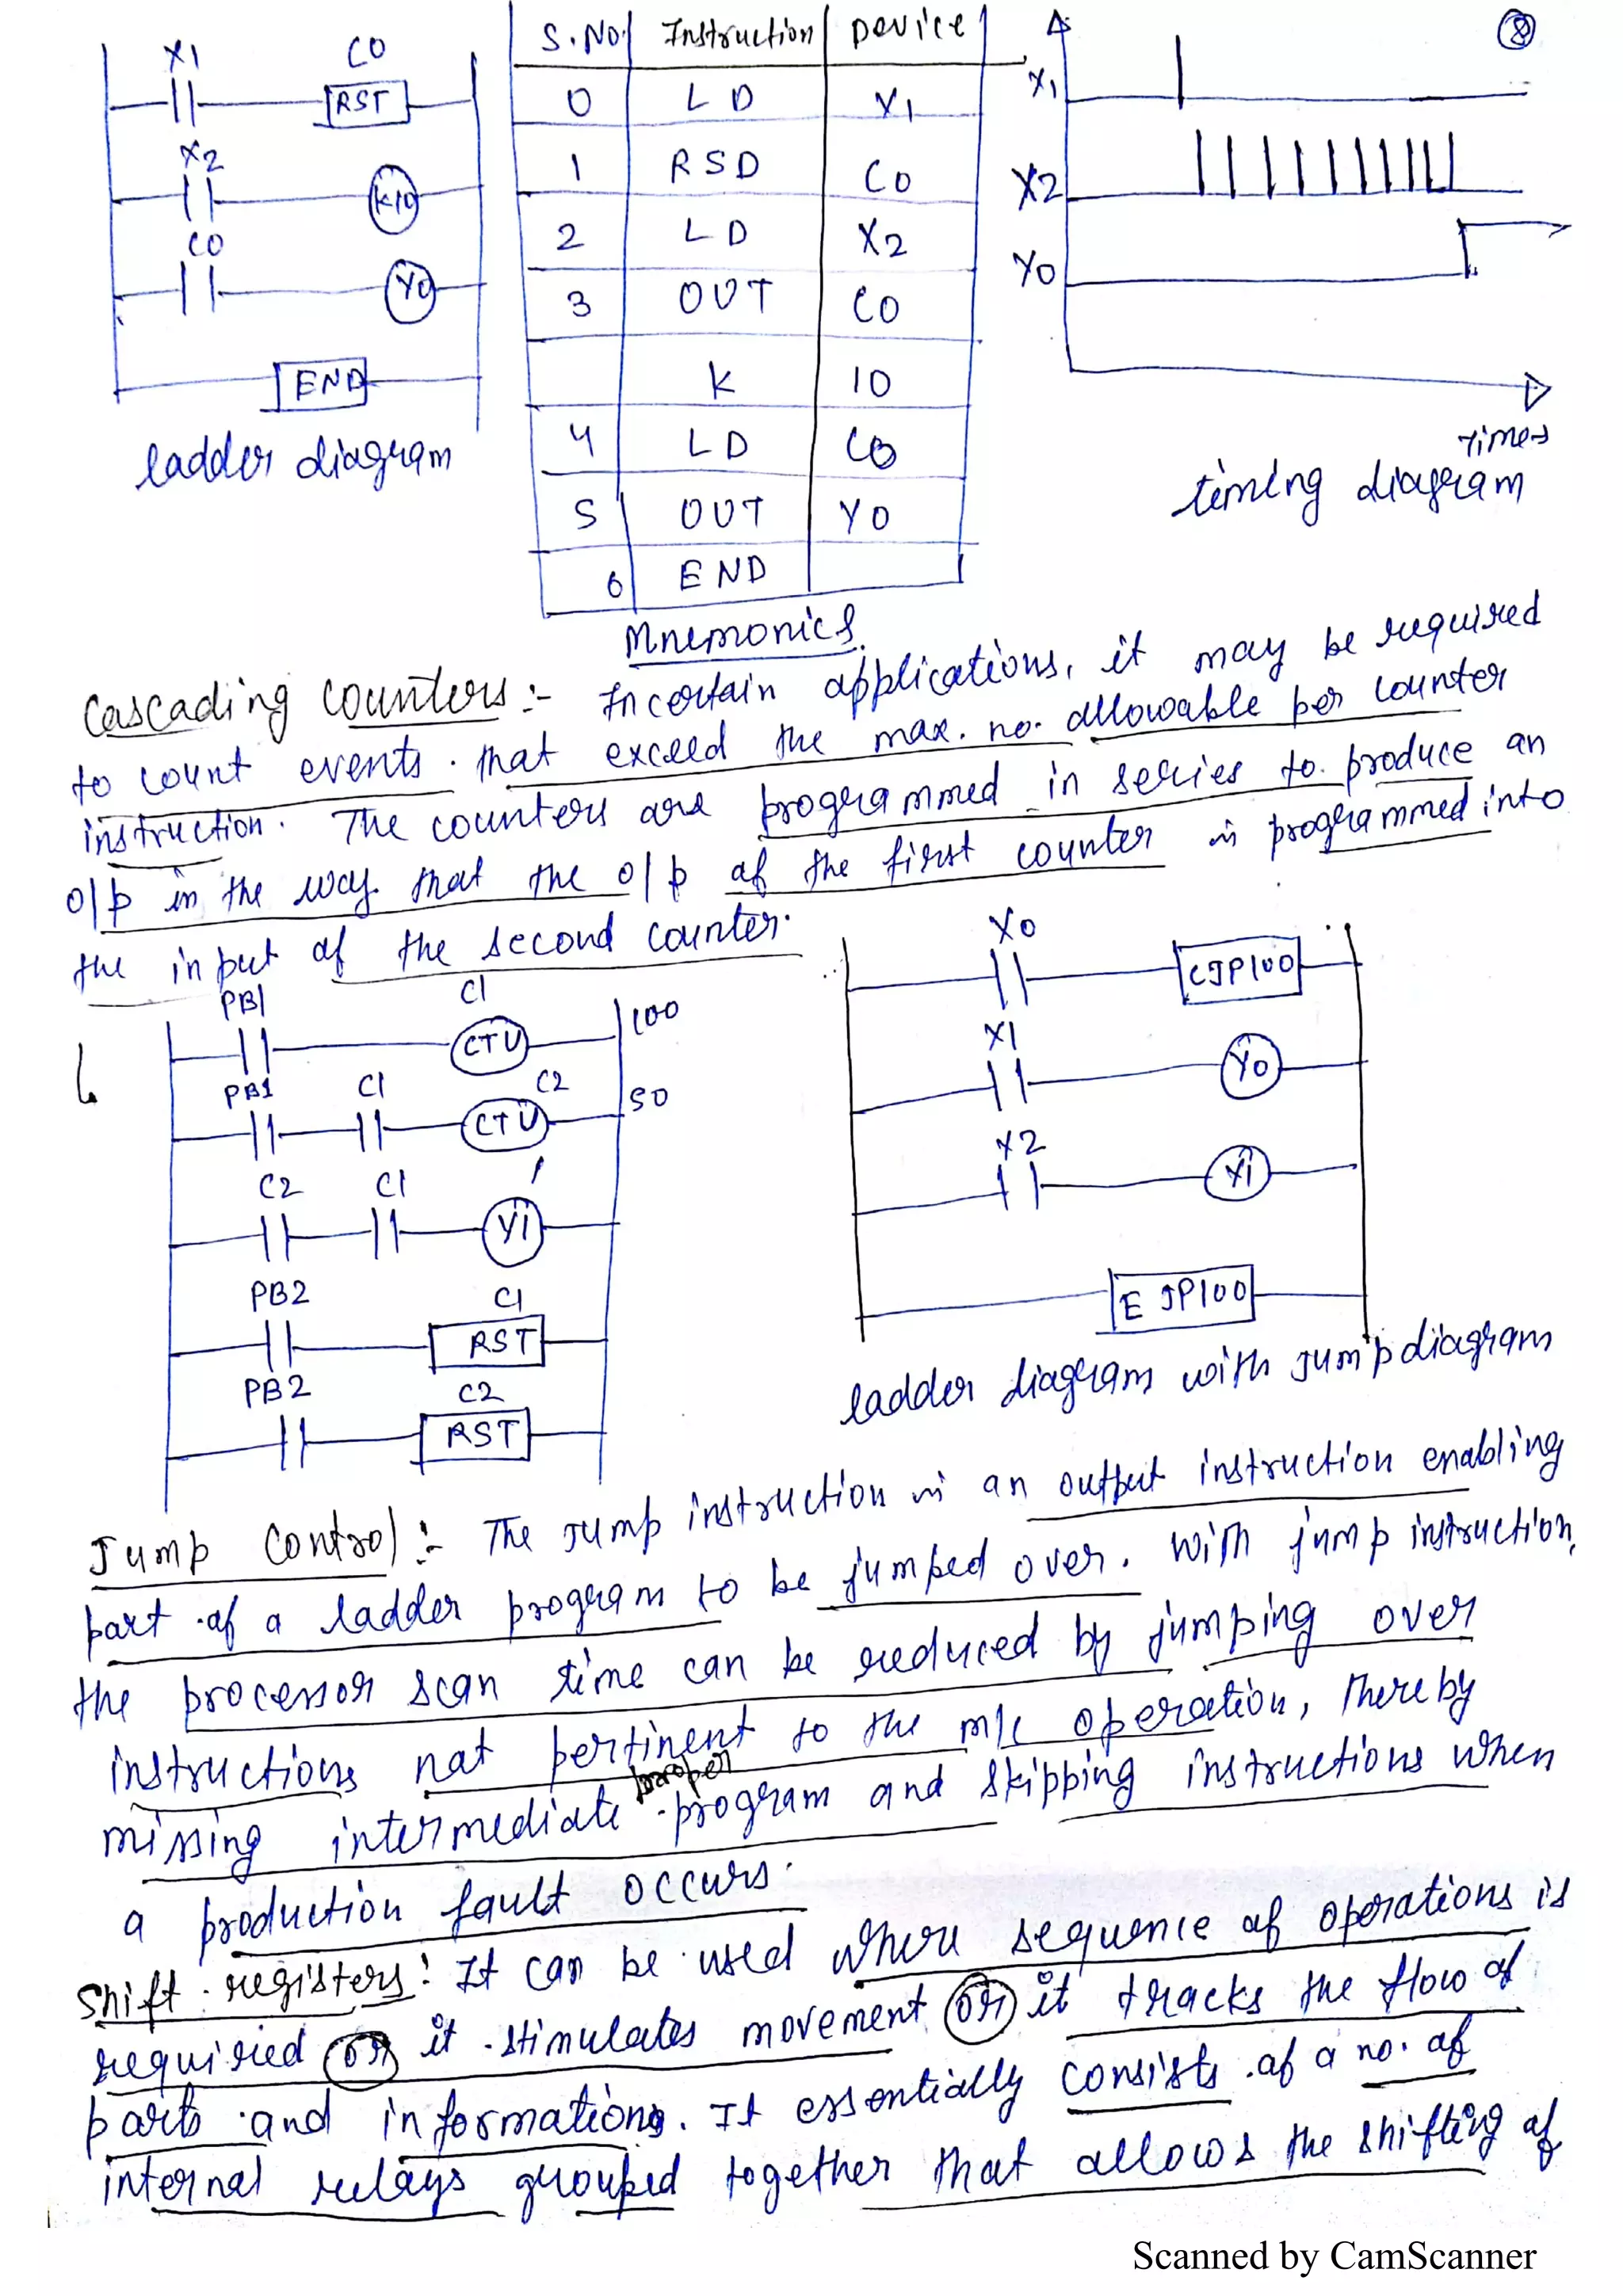 X1 C0
RST
X2
K10
C0
Y0
END
ladder diagram
S.No. Instruction Device
0 LD X1
1 RSD C0
2 LD X2
3 OUT C0
K 10
4 LD C0
5 OUT Y0
6 END
Mnemonics.
8
X1
X2
Y0
Times
timing diagram
Cascading counters :- In certain applications, it may be required
to count events that exceed the max. no. allowable per counter
instruction. The counters are programmed in series to produce an
o/p in the way that the o/p of the first counter is programmed into
the input of the second counter.
PB1 C1
CTU 100
PB1 C1 C2
CTU 50
C2 C1
Y1
PB2 C1
RST
PB2 C2
RST
X0
CJP100
X1
Y0
X2
Y1
EJP100
ladder diagram with Jump diagram
Jump Control :- The Jump instruction is an output instruction enabling
part of a ladder program to be jumped over. With jump instruction,
the processor scan time can be reduced by jumping over
instructions not pertinent to the m/c operation, thereby
missing intermediate proper program and skipping instructions when
a production fault occurs.
Shift registers : It can be used where sequence of operations is
required or it stimulates movement or it tracks the flow of
parts and informations. It essentially consists of a no. of
internal relays grouped together that allows the shifting of
Scanned by CamScanner